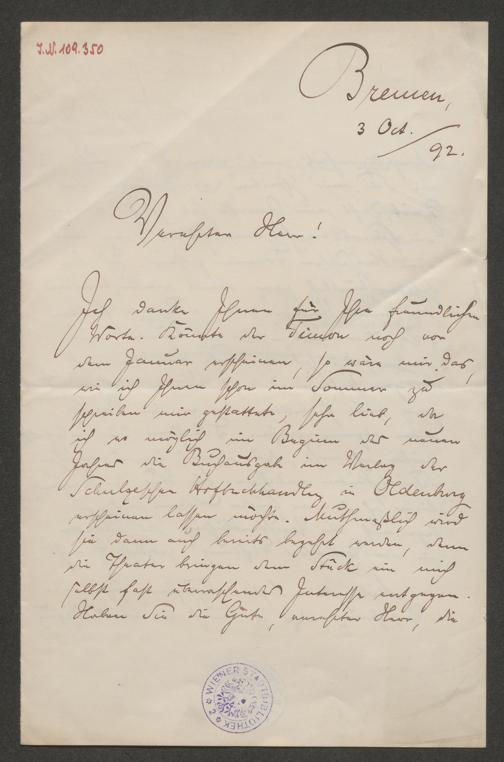 J.N. 109.350
Bremen,
3 Oct. / 92.
Verehrter Herr!
Ich danke Ihnen für Ihre freundlichen
Worte. Könnte der Timon noch vor
dem Januar erscheinen, so wäre mir das,
wie ich Ihnen schon im Sommer zu
schreiben mir gestattete, sehr lieb, da
ich wo möglich im Beginn des neuen
Jahres die Buchausgabe im Verlag der
Schulzeschen Hofbuchhandlg in Oldenburg
erscheinen lassen möchte. Muthmaßlich wird
sie dann auch bereits begehrt werden, denn
die Theater bringen dem Stück ein mich
selbst fast überraschendes Interesse entgegen.
Haben Sie die Güte, verehrter Herr, die
WIENER STADTBIBLIOTHEK